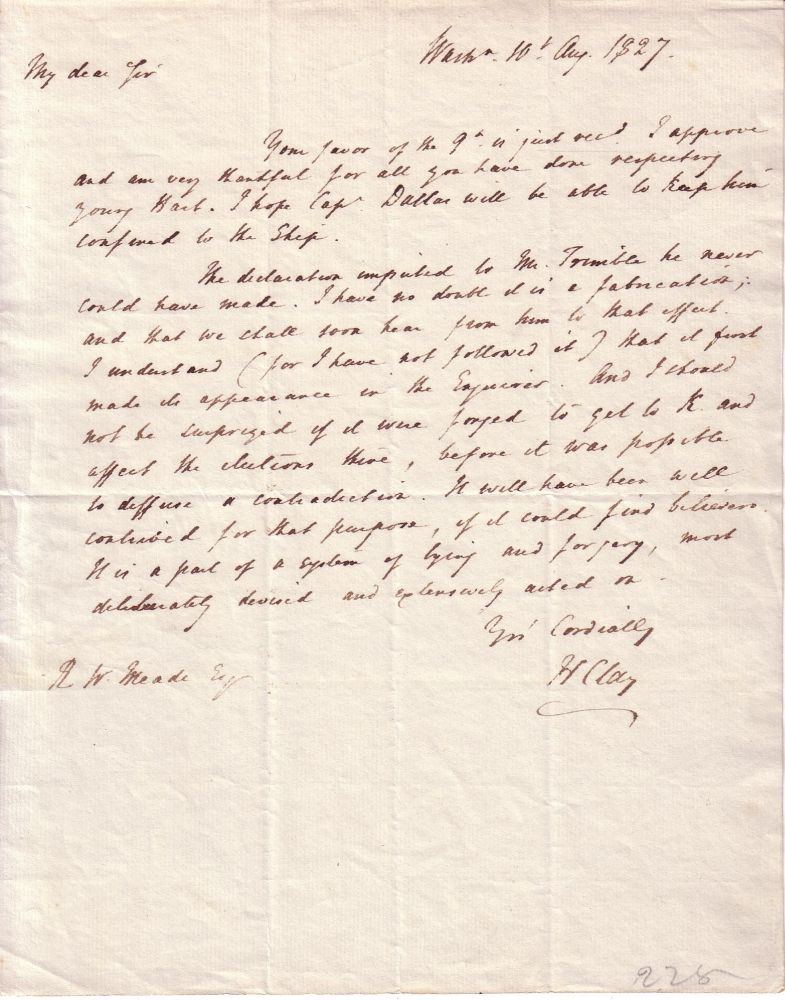 Washn. 10t. Aug. 1827.
My dear Sir
Your favor of the 9h. is just recd. I approve
and am very thankful for all you have done respecting
young Hart. I hope Capt. Dallas will be able to keep him
confined to the Ship.
The declaration imputed to Mr. Trimble he never
could have made. I have no doubt it is a fabrication;
and that we shall soon hear from him to that effect.
I understand (for I have not followed it) that it first
made its appearance in the Enquirer. And I should
not be surprized if it were forged to get to K. and
affect the elections there, before it was possible
to diffuse a contradiction. It will have been well
contrived for that purpose, if it could find believers.
It is a part of a system of lying and forgery, most
deliberately devised and extensively acted on.
Yrs Cordially
H Clay
R W. Meade Esq
228